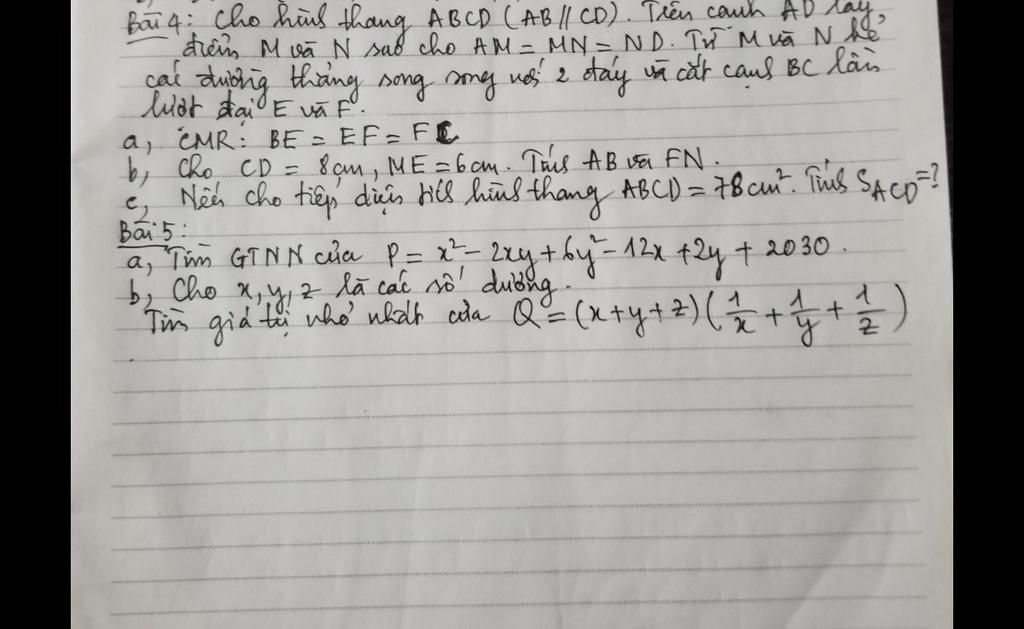 Bài 4: Cho hình thang ABCD (AB // CD). Trên cạnh AD lấy
điểm M và N sao cho AM = MN = ND. Từ M và N kẻ
các đường thẳng song song với 2 đáy và cắt cạnh BC lần
lượt đại E và F.
a, CMR: BE = EF = FC
b, Cho CD = 8cm, ME = 6cm. Tính AB và FN.
c, Nếu cho tiếp diện tích hình thang ABCD = 78cm². Tính S_ACD = ?
Bài 5:
a, Tìm GTNN của P = x² - 2xy + 6y² - 12x + 2y + 2030.
b, Cho x, y, z là các số dương.
Tìm giá trị nhỏ nhất của Q = (x + y + z)(1/x + 1/y + 1/z)